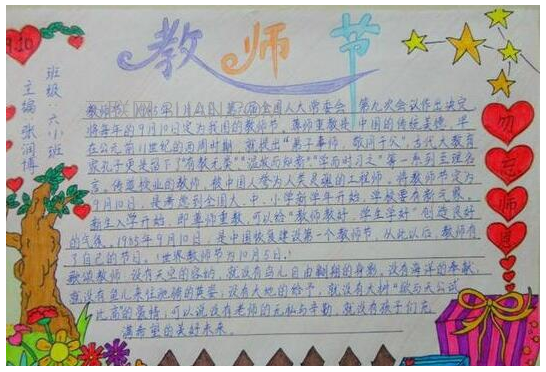 教师节
9.10
班级:六小班
主编 张润博
教师节 1985年1月21日,第六届全国人大常委会 第九次会议作出决定
将每年的9月10日定为我国的教师节。尊师重教是中国的传统美德,早
在公元前11世纪的西周时期,就提出"弟子事师,敬同于父"。古代大教育
家孔子更是留下了"有教无类""温故而知新""学而时习之"等一系列至理名
言。传道授业的教师,被中国人誉为人类灵魂的工程师,将教师节定为
9月10日,是考虑到全国大、中、小学新学年开始,学校要有新气象。
新生入学开始,即尊师重教,可以给"教师教好,学生学好"创造良好
的气氛。1985年9月10日,是中国恢复建设第一个教师节,从此以后,教师有
了自己的节日。(世界教师节为10月5日。)
歌颂教师 没有天空的容纳,就没有鸟儿自由翱翔的身影,没有海洋的奉献,
就没有鱼儿来往驰骋的英姿,没有大地的给予,就没有大树"欲与天公试
比高"的豪情,可以说没有老师的无私与辛勤,就没有孩子们充
满希望的美好未来。
勿
忘
师
恩